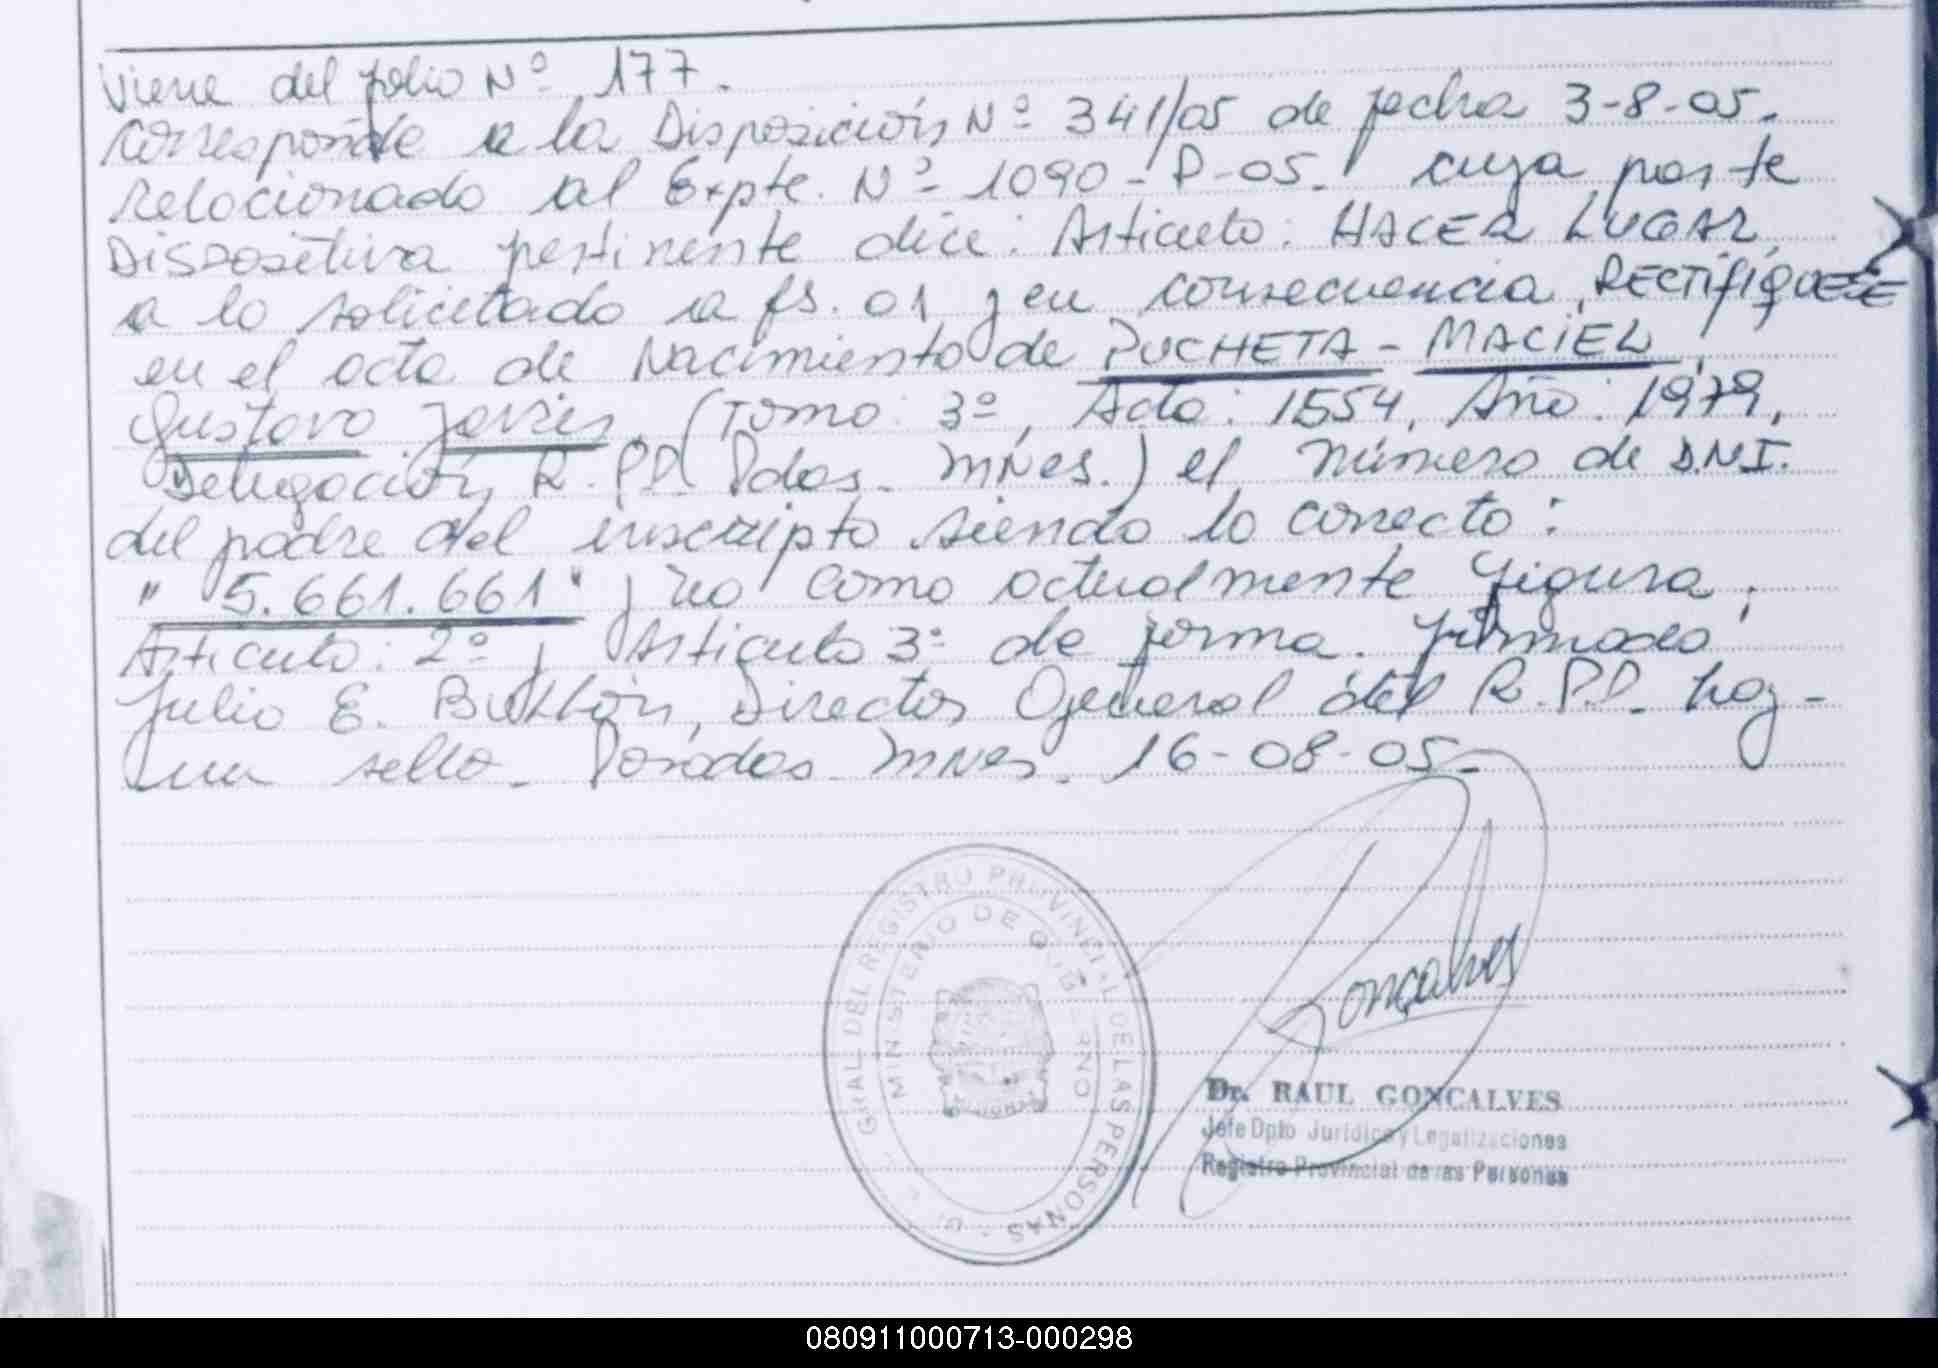 Viene del folio Nº 177.
Corresponde a la Disposición Nº 341/05 de fecha 3-8-05.
Relacionado al Expte. Nº 1090-P-05. cuya parte
Dispositiva pertinente dice: Articulo: HACER LUGAR,
a lo solicitado a fs. 01 y en consecuencia, RECTIFIQUESE
en el acta de Nacimiento de PUCHETA - MACIEL,
Gustavo Javier, (Tomo: 3º, Acta: 1554, Año: 1979,
Delegación R.P.P. Pdas. Mnes.) el número de D.N.I.
del padre del inscripto siendo lo correcto:
" 5.661.661" y no como actualmente figura,
Articulo: 2º y Articulo 3º de forma. Firmado
Julio E. Director General del R.P.P. hay
un sello. Posadas Mnes. 16-08-05.
GRAL DEL REGISTRO PROVINCIAL DE LAS PERSONAS
MINISTERIO DE GOBIERNO
Goncalves
Dr. RAUL GONCALVES
Jefe Dpto Jurídico y Legalizaciones
Registro Provincial de las Personas
080911000713-000298